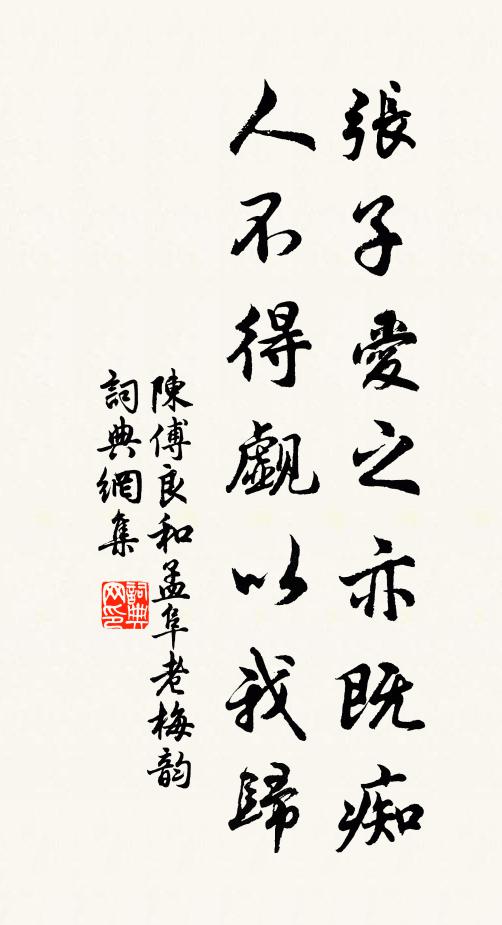 張子愛之亦既痴
人不得覰以我歸
陳傅良和孟阜老梅韵
詞典網集
詞典
网印